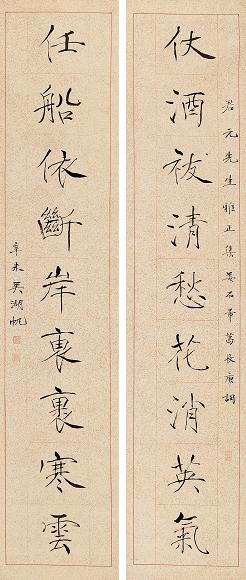 君元先生雅正集姜石帚葛長庚詞
仗酒祓清愁花消英氣
任船依斷岸褎裏寒雲
辛未吳湖帆